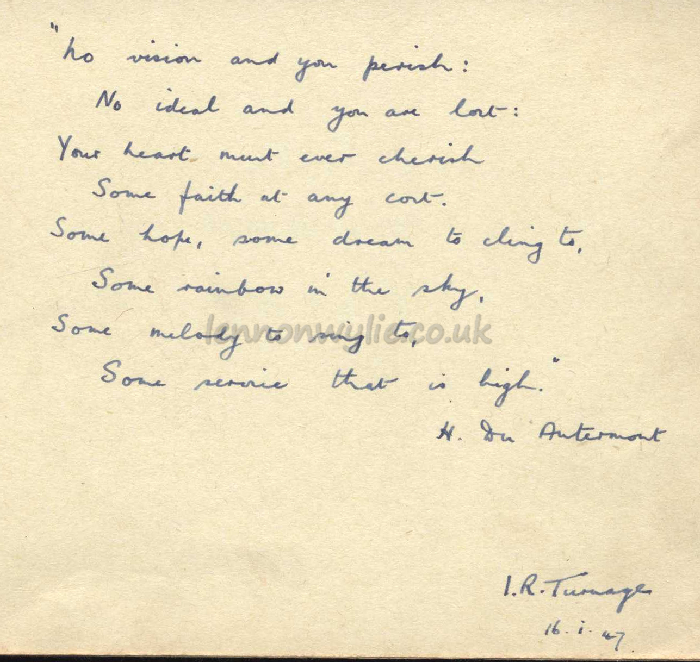 "No vision and you perish:
No ideal and you are lost:
Your heart must ever cherish
Some faith at any cost.
Some hope, some dream to cling to,
Some rainbow in the sky,
Some melody to sing to,
lennonwylie.co.uk
Some service that is high."
H. Du Autermont
I.R. Turnage
16. i. 47.